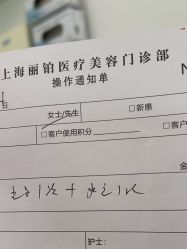 上海丽铂医疗美容门诊部
操作通知单
女士/先生 □新患
□客户使用积分 □客户
金
护士: